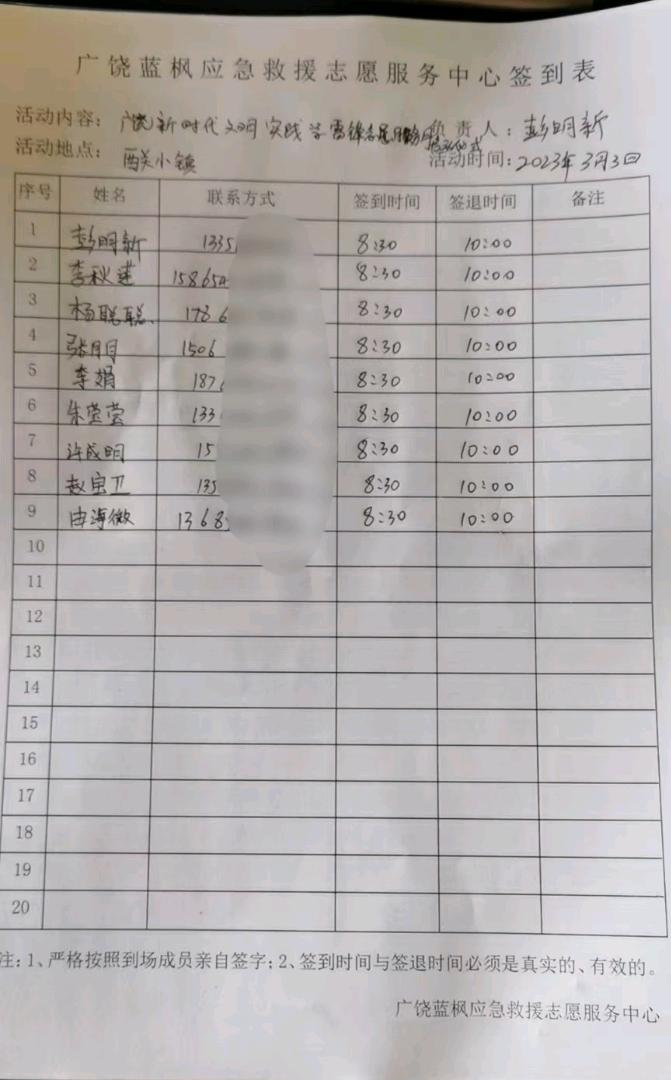 广饶蓝枫应急救援志愿服务中心签到表
活动内容: 广饶新时代文明实践学雷锋志愿服务 负责人: 彭明新
启动仪式
活动地点: 西关小镇 活动时间: 2023年3月3日
序号 姓名 联系方式 签到时间 签退时间 备注
1 彭明新 1335 8:30 10:00
2 李秋莲 15865 8:30 10:00
3 杨聪聪 178 6 8:30 10:00
4 张月月 1506 8:30 10:00
5 李娟 187 8:30 10:00
6 朱莹莹 133 8:30 10:00
7 许成明 15 8:30 10:00
8 赵宝卫 135 8:30 10:00
9 由海微 1368 8:30 10:00
10
11
12
13
14
15
16
17
18
19
20
注:1、严格按照到场成员亲自签字;2、签到时间与签退时间必须是真实的、有效的。
广饶蓝枫应急救援志愿服务中心